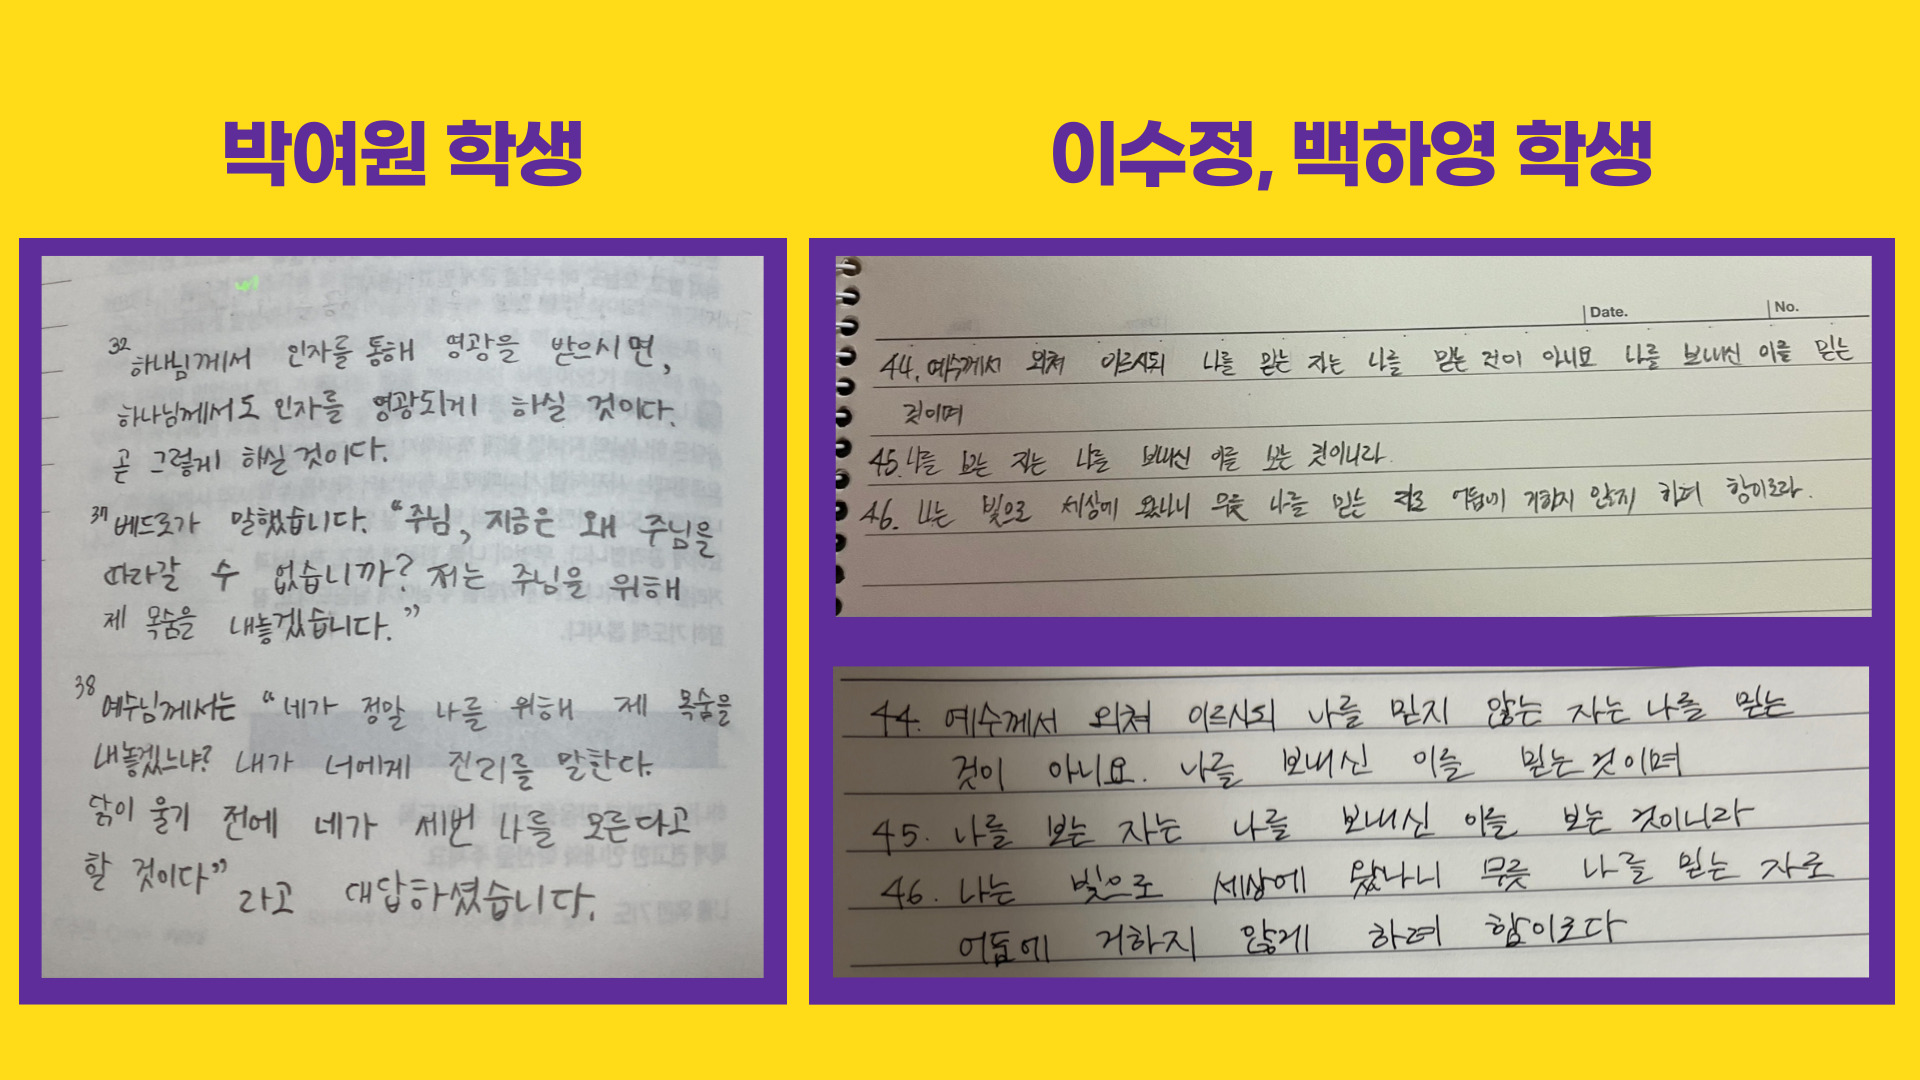 박여원 학생
32 하나님께서 인자를 통해 영광을 받으시면,
하나님께서도 인자를 영광되게 하실 것이다.
곧 그렇게 하실 것이다.
37 베드로가 말했습니다. “주님, 지금은 왜 주님을
따라갈 수 없습니까? 저는 주님을 위해
제 목숨을 내놓겠습니다.”
38 예수님께서는 “네가 정말 나를 위해 제 목숨을
내놓겠느냐? 내가 너에게 진리를 말한다.
닭이 울기 전에 네가 세번 나를 모른다고
할 것이다” 라고 대답하셨습니다.
이수정, 백하영 학생
Date. No.
44. 예수께서 외쳐 이르시되 나를 믿는 자는 나를 믿는 것이 아니요 나를 보내신 이를 믿는
것이며
45. 나를 보는 자는 나를 보내신 이를 보는 것이니라
46. 나는 빛으로 세상에 왔나니 무릇 나를 믿는 거하지 않지 하려 함이로라.
44. 예수께서 외쳐 이르시되 나를 믿지 않는 자는 나를 믿는
것이 아니요. 나를 보내신 이를 믿는 것이며
45. 나를 보는 자는 나를 보내신 이를 보는 것이니라
46. 나는 빛으로 세상에 왔나니 무릇 나를 믿는 자로
어둡에 거하지 않게 하려 함이로다